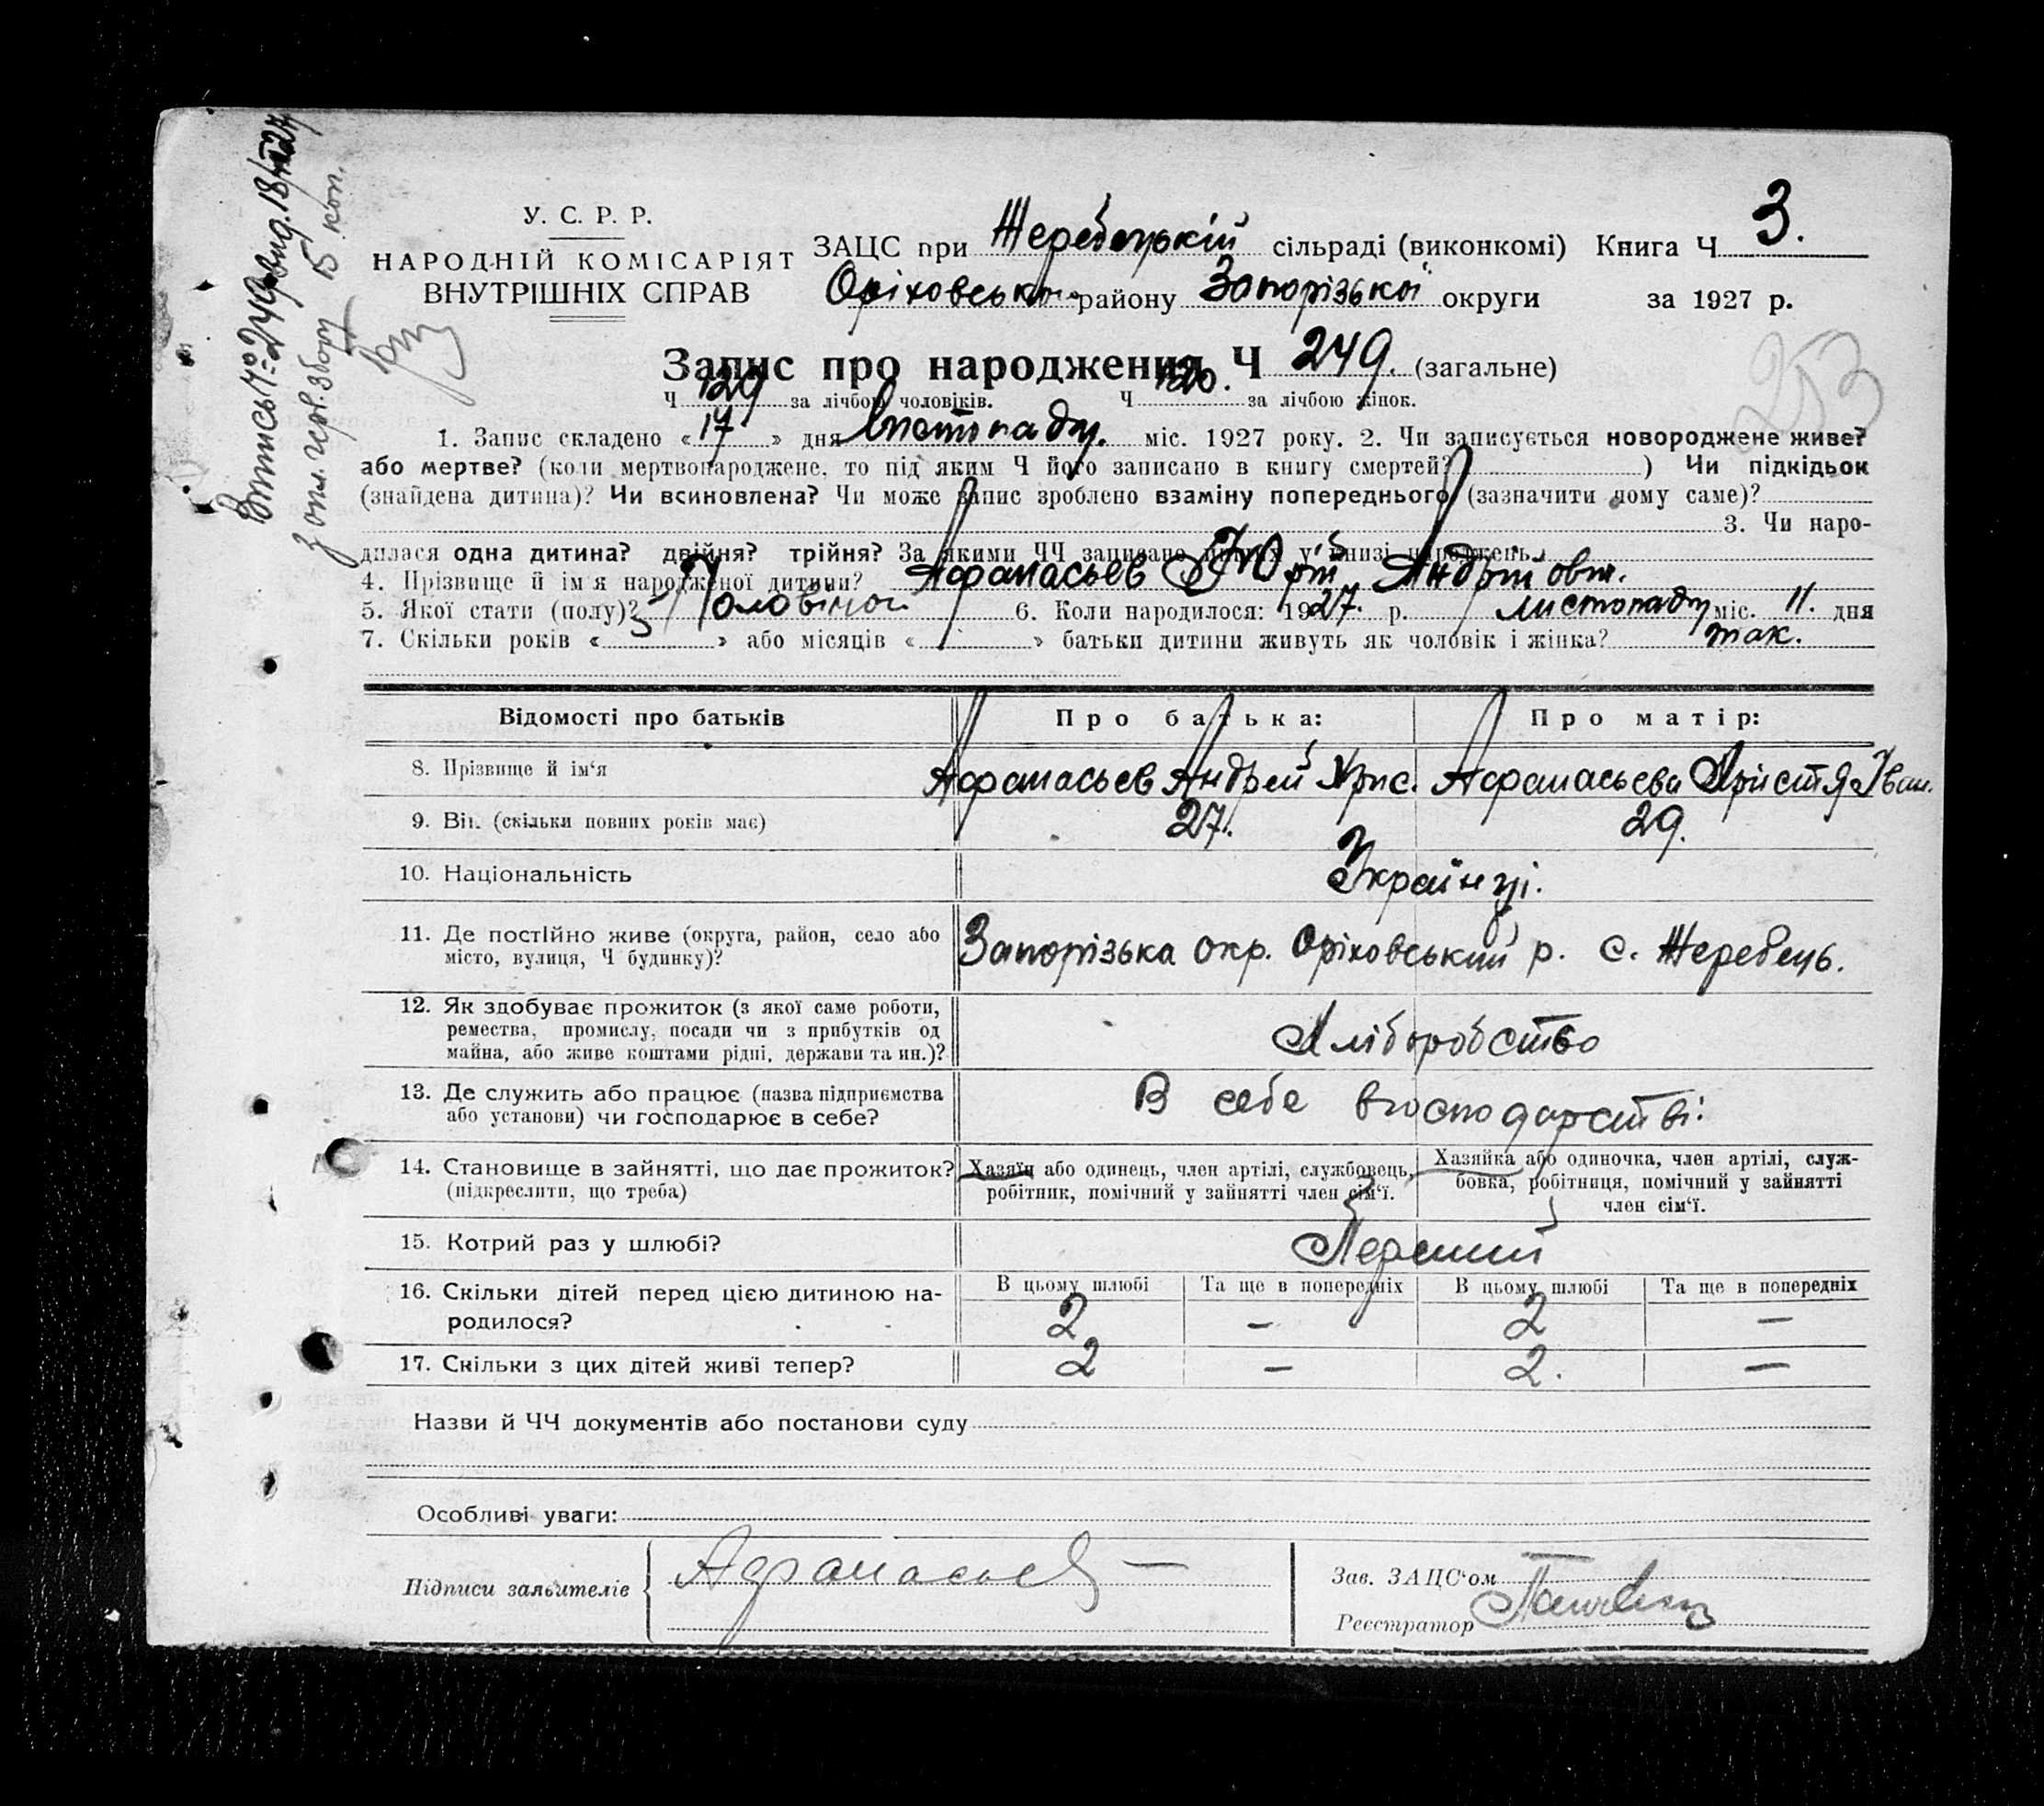 Випись № 249 вид. 18/XI 27
з опл. герб. збору 15 коп.
У. С. Р. Р.
НАРОДНІЙ КОМІСАРІЯТ
ВНУТРІШНІХ СПРАВ
ЗАЦС при Жеребецькій сільраді (виконкомі) Книга Ч 3.
Оріховського району Запорізької округи за 1927 р.
Запис про народження Ч 249. (загальне)
253
Ч 129 за лічбою чоловіків. Ч 120. за лічбою жінок.
1. Запис складено « 17 » дня листопаду. міс. 1927 року. 2. Чи записується новороджене живе?
або мертве? (коли мертвонароджене, то під яким Ч його записано в книгу смертей? ) Чи підкідьок
(знайдена дитина)? Чи всиновлена? Чи може запис зроблено взаміну попереднього (зазначити чому саме)?
3. Чи наро-
дилася одна дитина? двійня? трійня? За якими ЧЧ записано інших у книзі народжень
4. Прізвище й ім'я народженої дитини? Афанасьев Юрій Андрійович.
5. Якої стати (полу)? Чоловічої 6. Коли народилося: 1927. р. листопаду міс. 11. дня
7. Скільки років « » або місяців « » батьки дитини живуть як чоловік і жінка? так.
Відомості про батьків Про батька: Про матір:
8. Прізвище й ім'я Афанасьев Андрей Хрис. Афанасьева Христя Іван.
9. Вік (скільки повних років має) 27. 29.
10. Національність Українці.
11. Де постійно живе (округа, район, село або
місто, вулиця, Ч будинку)? Запорізька окр. Оріховський р. с. Жеребець.
12. Як здобуває прожиток (з якої саме роботи,
ремества, промислу, посади чи з прибутків од
майна, або живе коштами рідні, держави та ин.)? Хліборобство
13. Де служить або працює (назва підприємства
або установи) чи господарює в себе? В себе в господарстві.
14. Становище в зайнятті, що дає прожиток?
(підкреслити, що треба)
Хазяїн або одинець, член артілі, службовець,
робітник, помічний у зайнятті член сім'ї.
Хазяйка або одиночка, член артілі, служ-
бовка, робітниця, помічний у зайнятті
член сім'ї.
15. Котрий раз у шлюбі? Перший
16. Скільки дітей перед цією дитиною на-
родилося?
В цьому шлюбі Та ще в попередніх В цьому шлюбі Та ще в попередніх
2 – 2 –
17. Скільки з цих дітей живі тепер? 2 – 2. –
Назви й ЧЧ документів або постанови суду
Особливі уваги:
Підписи заявителів Афанасьев –
Зав. ЗАЦС'ом
Реєстратор